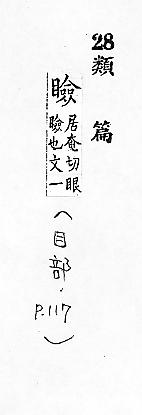 28 類篇
瞼 居奄切眼
瞼也文一
(目部, P.117)